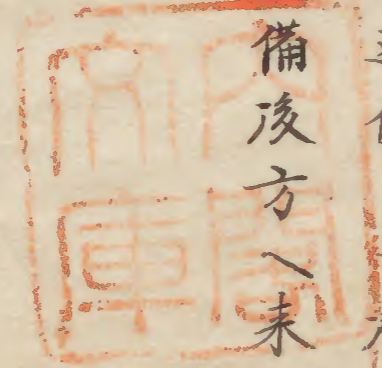 備後方へ来
内閣文庫